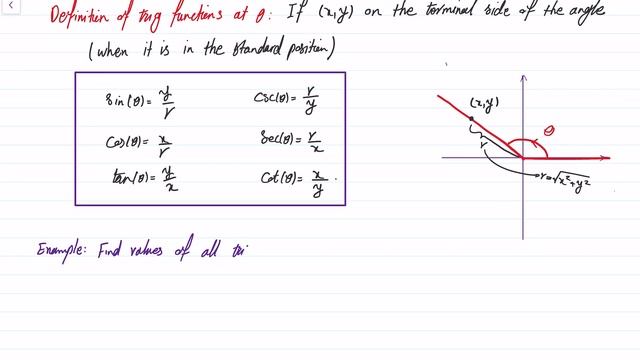 Definition of trig functions at θ: If (x,y) on the terminal side of the angle
(when it is in the standard position)
sin(θ) = y/r csc(θ) = r/y
cos(θ) = x/r sec(θ) = r/x
tan(θ) = y/x cot(θ) = x/y
(x,y)
θ
r
r=√x²+y²
Example: Find values of all tri